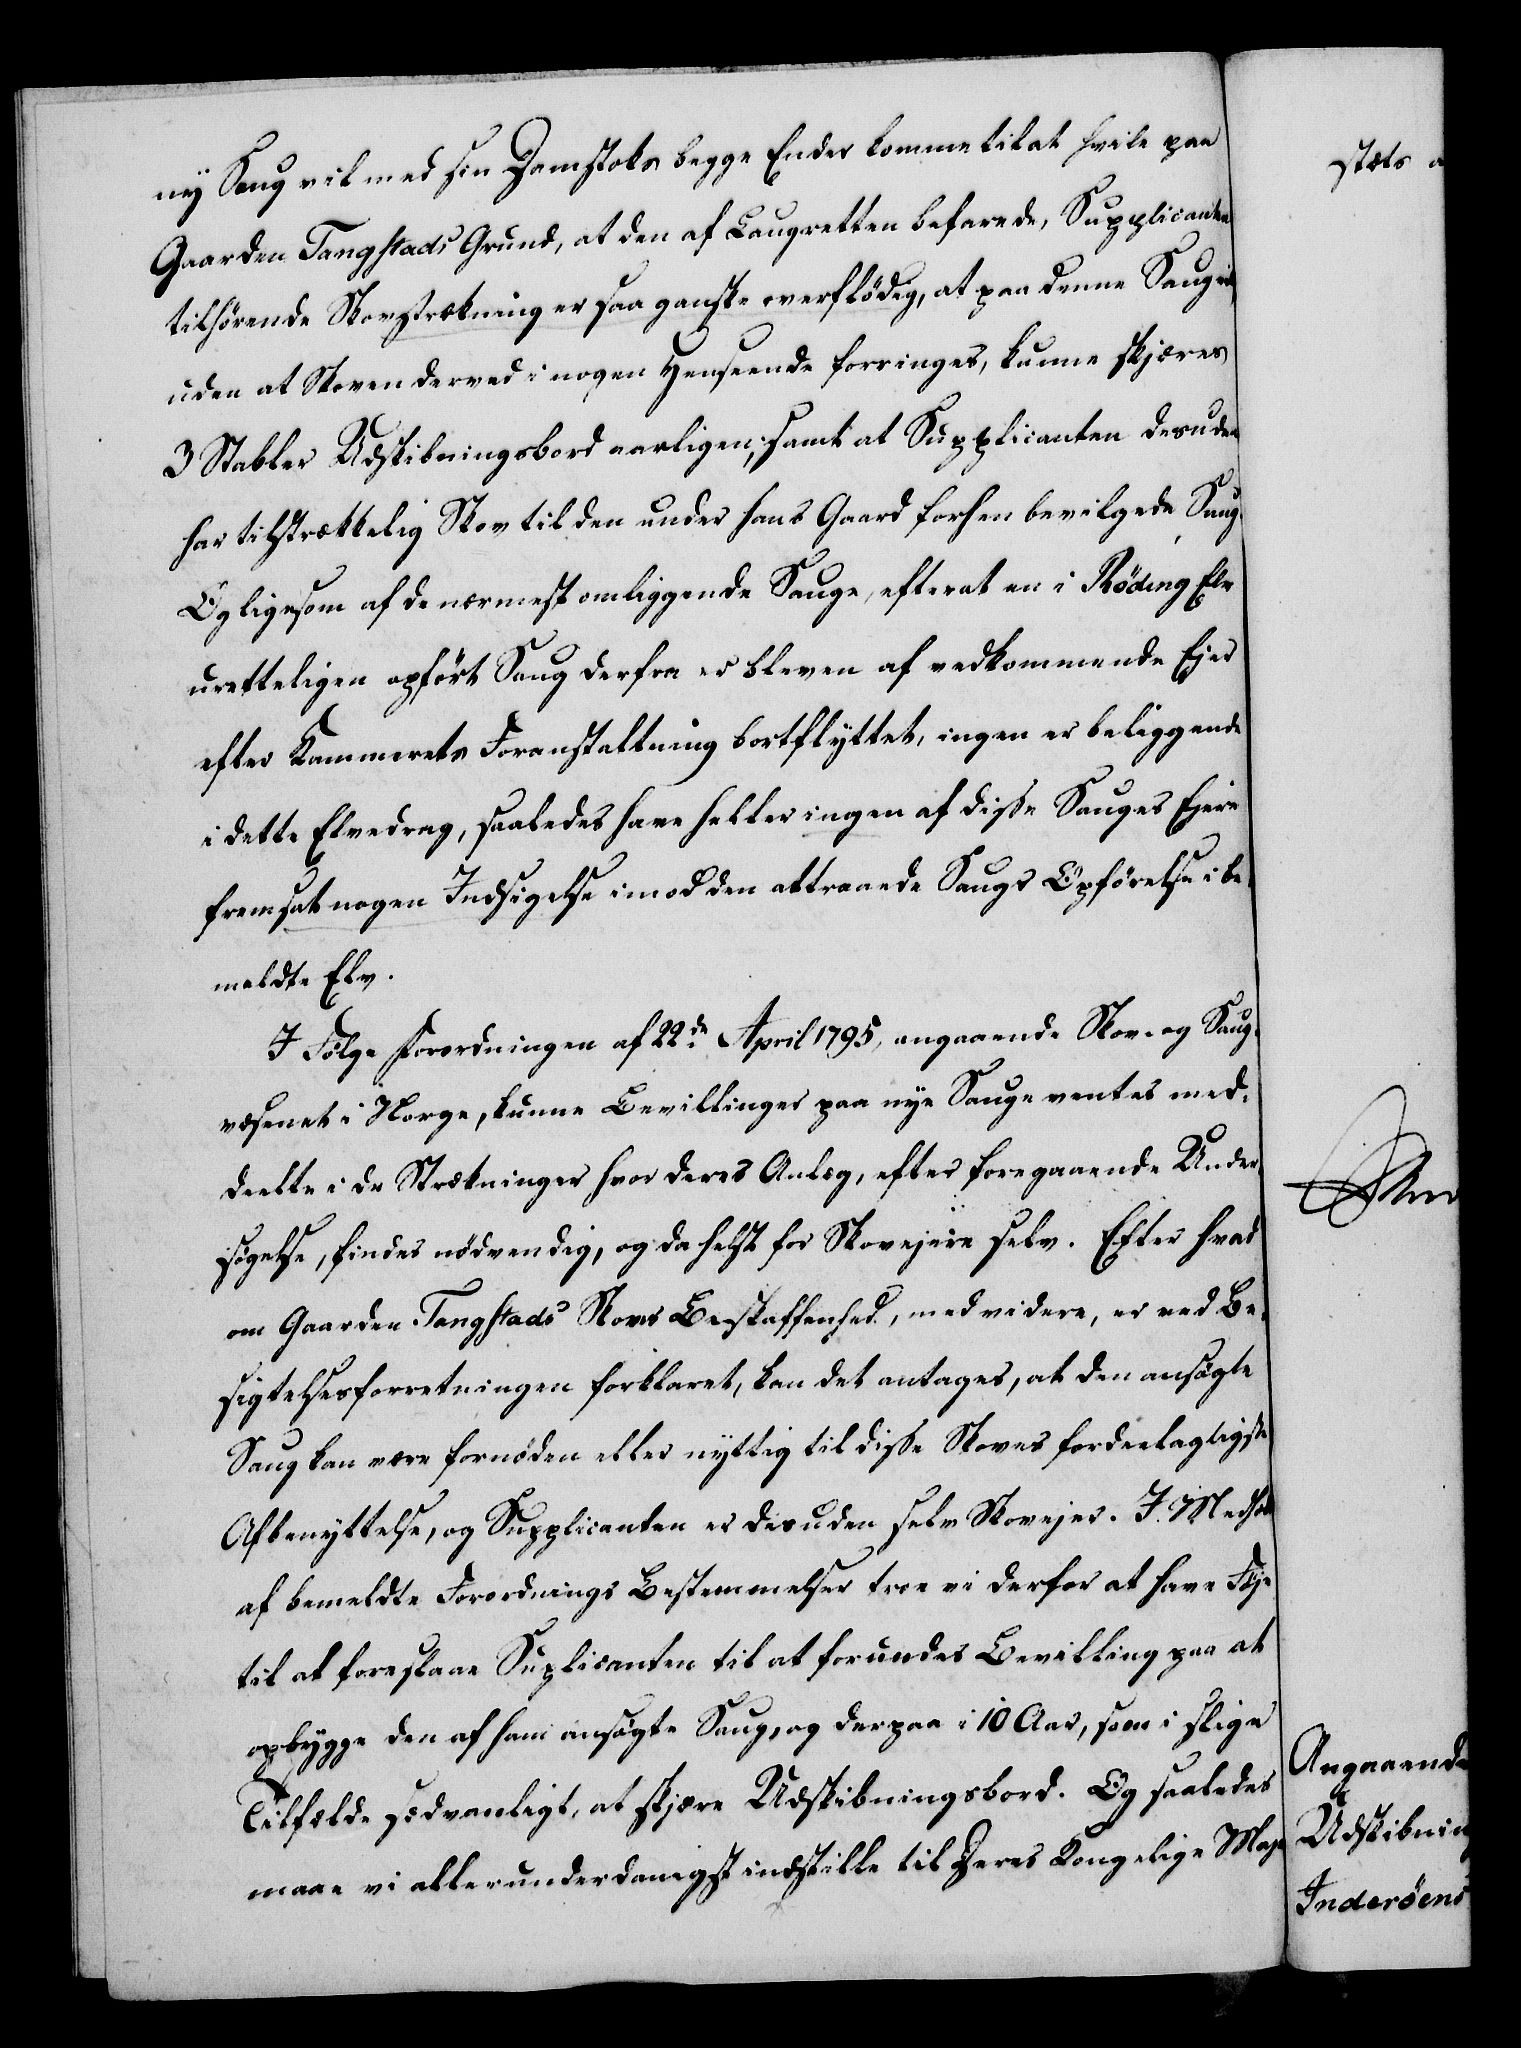 ny Saug vil med sin Damstoks begge Ender komme til at hvile paa
Gaarden Tangstads Grund, at den af Laugretten befarede, Supplicanten
tilhørende Skovstrækning er saa ganske overflödig, at paa denne Saug vil,
uden at Skoven derved i nogen Henseende forringes, kunne skjæres
3 Stabler Udskibningsbord aarligen; samt at Supplicanten desuden
har tilstrækkelig Skov til den under hans Gaard forhen bevilgede Saug.
Og ligesom af de nærmest omliggende Sauge, efterat en i Röding Elv
uretteligen opført Saug derfra er bleven af vedkommende Ejer
efter Kammerets Foranstaltning bortflyttet, ingen er beliggende
i dette Elvedrag, saaledes have heller ingen af disse Sauges Ejere
fremsat nogen Indsigelse imod den attraaede Saugs Opførelse i be-
meldte Elv.
I Følge Forordningen af 22de April 1795, angaaende Skov- og Saug-
væsenet i Norge, kunne Bevillinger paa nye Sauge ventes med-
deelte i de Strækninger hvor deres Anlæg, efter foregaaende Under-
søgelse, findes nödvendig, og da helst for Skovejere selv. Efter hvad
om Gaarden Tangstads Skovs Beskaffenhed, med videre, er ved Be-
sigtelsesforretningen forklaret, kan det antages, at den ansøgte
Saug kan være fornöden eller nyttig til disse Skoves fordeelagtigste
Afbenyttelse, og Supplicanten er desuden selv Skovejer. I Medhold
af bemeldte Forordnings Bestemmelser troe vi derfor at have Føje
til at foreslaae Suplicanten til at forundes Bevilling paa at
opbygge den af ham ansøgte Saug, og derpaa i 10 Aar, som i slige
Tilfælde sædvanligt, at skjære Udskibningsbord. Og saaledes
maae vi allerunderdanigst indstille til Deres Kongelige Maje-
stæts a
Angaaende
Udskibning
Inderöens